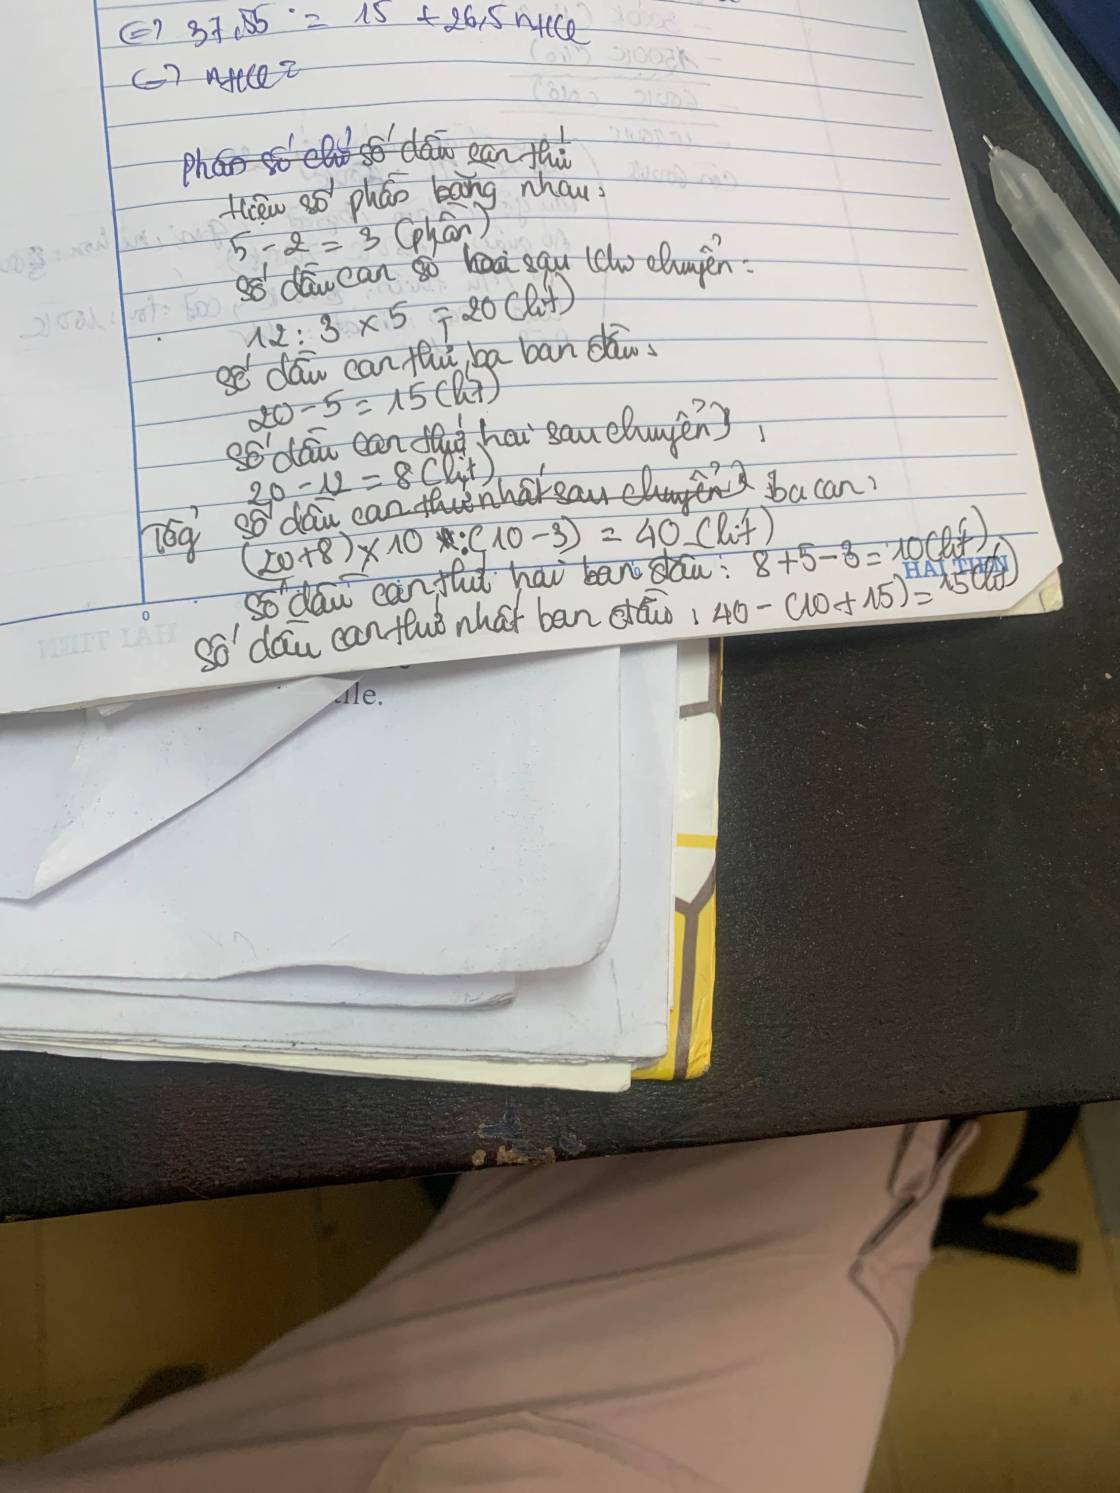 (=) 37,55 = 15 + 26,5 nHCl
(=) nHCl =
Phân số chỉ số dầu can thứ
Hiệu số phần bằng nhau:
5 - 2 = 3 (phần)
Số dầu can số sau khi chuyển:
12 : 3 x 5 = 20 (lít)
Số dầu can thứ ba ban đầu:
20 - 5 = 15 (lít)
Số dầu can thứ hai sau chuyển:
20 - 12 = 8 (lít)
Tổng số dầu can thứ nhất sau chuyển ba can:
(20+8) x 10 : (10 - 3) = 40 (lít)
Số dầu can thứ hai ban đầu: 8 + 5 - 3 = 10 (lít)
HẢI TIẾN
Số dầu can thứ nhất ban đầu: 40 - (10 + 15) = 15 (lít)
ile.